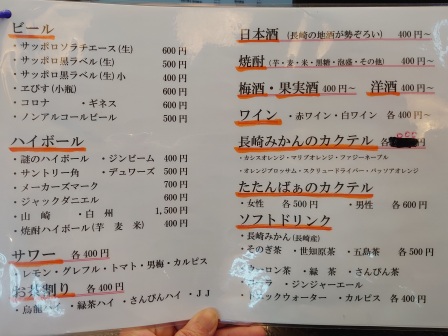 ビール
・サッポロソラチエース(生) 600円
・サッポロ黒ラベル(生) 500円
・サッポロ黒ラベル(生)小 400円
・ヱびす(小瓶) 600円
・コロナ ・ギネス 600円
・ノンアルコールビール 500円
ハイボール
・謎のハイボール ・ジンビーム 400円
・サントリー角 ・デュワーズ 500円
・メーカーズマーク 700円
・ジャックダニエル 600円
・山崎 ・白州 1,500円
・焼酎ハイボール(芋 麦 米) 400円
サワー 各400円
・レモン・グレフル・トマト・男梅・カルピス
お茶割り 各400円
・烏龍ハイ ・緑茶ハイ ・さんぴんハイ ・JJ
日本酒 (長崎の地酒が勢ぞろい) 400円～
焼酎 (芋・麦・米・黒糖・泡盛・その他) 400円～
梅酒・果実酒 400円～ 洋酒 400円～
ワイン ・赤ワイン・白ワイン 各400円～
長崎みかんのカクテル 各
・カシスオレンジ・マリブオレンジ・ファジーネーブル
・オレンジブロッサム・スクリュードライバー・パッソアオレンジ
たたんばぁのカクテル
・女性 各500円 ・男性 各600円
ソフトドリンク
・長崎みかん(長崎産)
・そのぎ茶 ・世知原茶 ・五島茶 各500円
・ウーロン茶 ・緑茶 ・さんぴん茶
・コーラ ・ジンジャーエール
・トニックウォーター ・カルピス 各400円